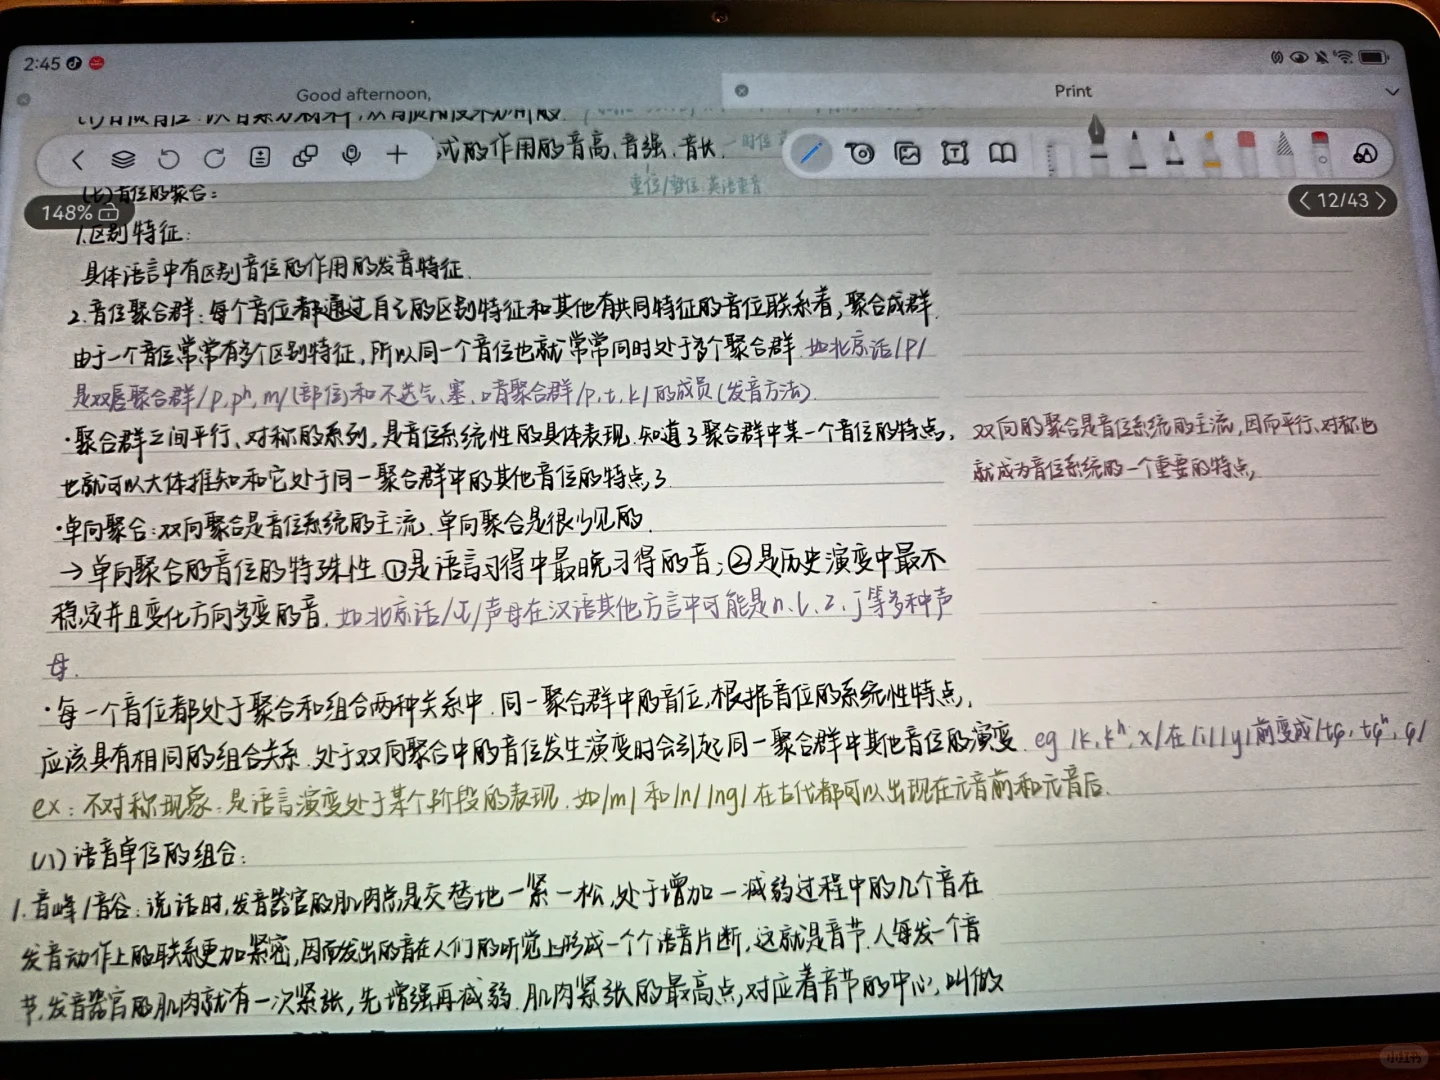 2:45
Good afternoon,
Print
式的作用的音高、音强、音长.
148%
12/43
(七)音位的聚合:
1.区别特征:
具体语言中有区别音位的作用的发音特征.
2.音位聚合群:每个音位都通过自己的区别特征和其他有共同特征的音位联系着,聚合成群.
由于一个音位常常有多个区别特征,所以同一个音位也就常常同时处于多个聚合群.如北京话/P/
是双唇聚合群/p,pʰ,m/(部位)和不送气、塞、口音聚合群/p,t,k/的成员(发音方法).
·聚合群之间平行、对称的系列,是音位系统性的具体表现.知道了聚合群中某一个音位的特点,
双向的聚合是音位系统的主流,因而平行、对称也
也就可以大体推知和它处于同一聚合群中的其他音位的特点了.
就成为音位系统的一个重要的特点,
·单向聚合:双向聚合是音位系统的主流.单向聚合是很少见的.
→单向聚合的音位的特殊性.①是语言习得中最晚习得的音;②是历史演变中最不
稳定并且变化方向多变的音.如北京话/ɻ/声母在汉语其他方言中可能是n、l、z、j等多种声
母.
·每一个音位都处于聚合和组合两种关系中.同一聚合群中的音位,根据音位的系统性特点,
应该具有相同的组合关系.处于双向聚合中的音位发生演变时会引起同一聚合群中其他音位的演变. eg /k,kʰ,x/在/i//y/前变成/tɕ,tɕʰ,ɕ/
ex:不对称现象:是语言演变处于某个阶段的表现.如/m/和/n//ng/在古代都可以出现在元音前和元音后.
(八)语音单位的组合:
1.音峰/音谷:说话时,发音器官的肌肉总是交替地一紧一松,处于增加一减弱过程中的几个音在
发音动作上的联系更加紧密,因而发出的音在人们的听觉上形成一个个语音片断,这就是音节.人每发一个音
节,发音器官的肌肉就有一次紧张,先增强再减弱.肌肉紧张的最高点,对应着音节的中心,叫做
小红书